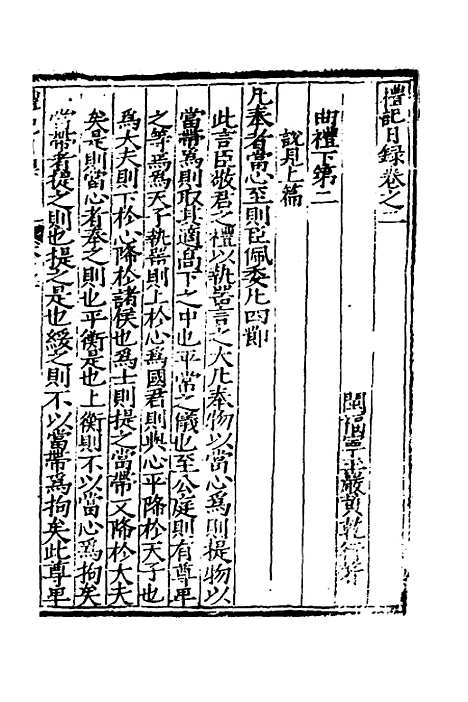 禮記日錄卷之二
閩福寧玉巖黃乾行著
曲禮下第二
說見上篇
凡奉者當心至則臣佩委凡四節
此言臣敬君之禮以執器言之大凡奉物以當心為則提物以
當帶為則取其適高下之中也平常之儀也至公庭則有尊卑
之等焉為天子執器則上於心為國君則與心平降於天子也
為大夫則下於心降於諸侯也為士則提之當帶又降於大夫
矣是則當心者奉之則也平衡是也上衡則不以當心為拘矣
當帶者提之則也提之是也綏之則不以當帶為拘矣此尊卑